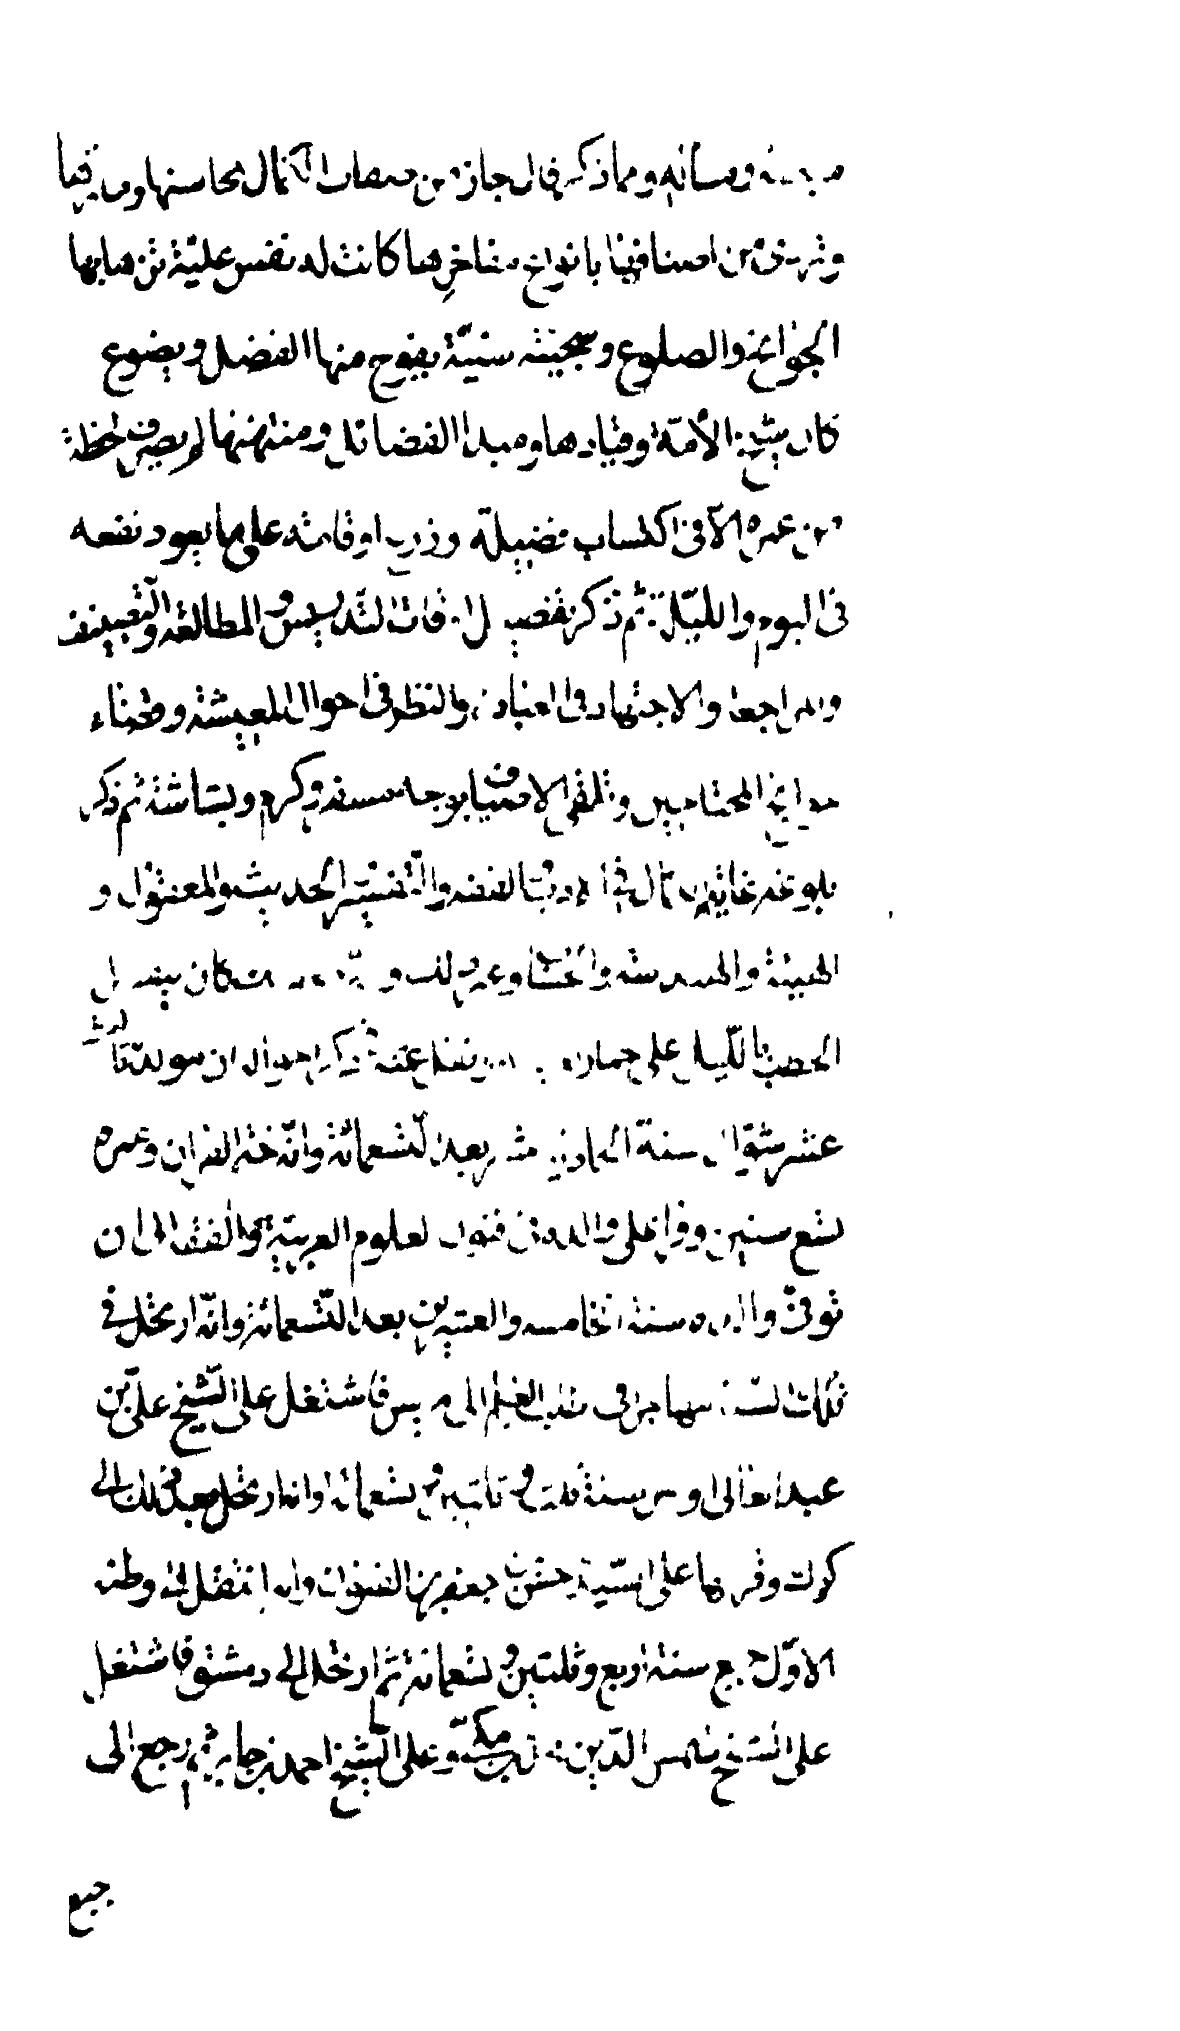 ومما ذكر قال حاز من صفات الكمال محاسنها ومآثرها
وتردى من اصنافها بانواع مفاخرها كانت له نفس علية تزهى بها
الجوانح والضلوع وسجية سنية يفوح منها الفضل ويضوع
كان شيخ الأمة وفتاها ومبدا الفضائل ومنتهاها لم يصرف لحظة
من عمره الا في اكتساب فضيلة ووزع اوقاته على ما يعود نفعه
في اليوم والليلة ثم ذكر تفصيل اوقات التدريس والمطالعة والتصنيف
والمراجعة والاجتهاد في العبادة والنظر في احوال المعيشة وقضاء
حوائج المحتاجين وتلقى الاضياف بوجه مسفر وكرم وبشاشة ثم ذكر
بلوغه غاية الكمال في الادب والفقه والتفسير والحديث والمعقول و
الهيئة والهندسة والحساب وغير ذلك و كان ينقل
الحطب بالليل على حمار ثم ذكر احواله ان مولده ثالث
عشر شوال سنة الحادية عشر بعد التسعمائة وانه ختم القران وعمره
تسع سنين وقرا على والده من فنون العلوم العربية والفقه الى ان
توفى والده سنة الخامسة والعشرين بعد التسعمائة وانه ارتحل في
تلك السنة مهاجرا في طلب العلم الى ميس فاشتغل على الشيخ على بن
عبد العالى سنة ثلاث وثلثين وتسعمائة وانه ارتحل بعد ذلك الى
كرك وقرء بها على السيد حسن بن جعفر من الفنون وانه انتقل الى وطنه
الاول جبع سنة اربع وثلثين وتسعمائة ثم ارتحل الى دمشق فاشتغل
على الشيخ شمس الدين محمد بن مكى وعلى الشيخ احمد بن جابر ثم رجع الى
جبع